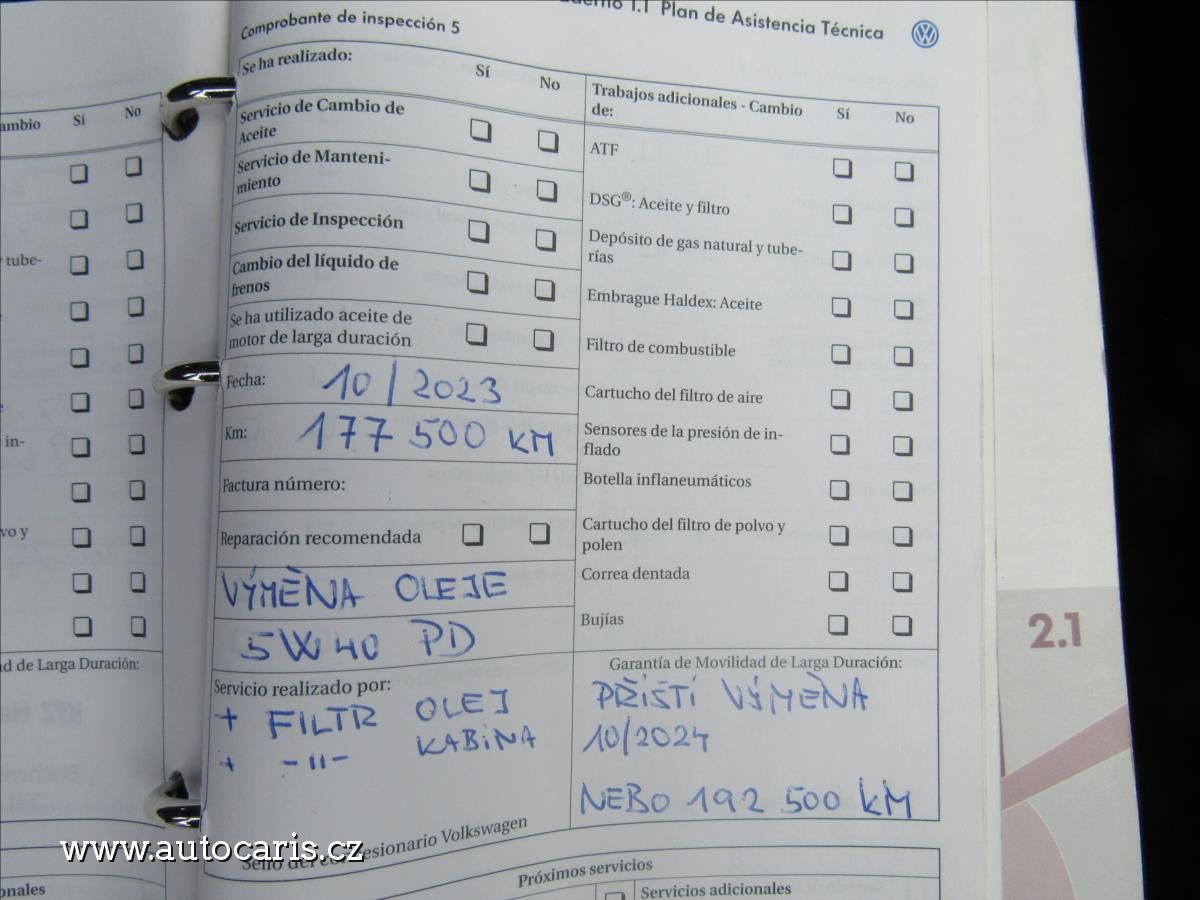 Cuaderno 1.1 Plan de Asistencia Técnica
Comprobante de inspección 5
Se ha realizado:
Sí
No
Servicio de Cambio de
Aceite
Servicio de Manteni-
miento
Servicio de Inspección
Cambio del líquido de
frenos
Se ha utilizado aceite de
motor de larga duración
Fecha: 10/2023
Km: 177 500 KM
Factura número:
Reparación recomendada
VÝMĚNA OLEJE
5W40 PD
Servicio realizado por:
+ FILTR OLEJ
+ -"- KABINA
Sello del concesionario Volkswagen
Trabajos adicionales - Cambio
de:
Sí
No
ATF
DSG®: Aceite y filtro
Depósito de gas natural y tube-
rías
Embrague Haldex: Aceite
Filtro de combustible
Cartucho del filtro de aire
Sensores de la presión de in-
flado
Botella inflaneumáticos
Cartucho del filtro de polvo y
polen
Correa dentada
Bujías
Garantía de Movilidad de Larga Duración:
PŘÍŠTÍ VÝMĚNA
10/2024
NEBO 192 500 KM
Próximos servicios
Servicios adicionales
2.1
ambio
Sí
No
y tube-
in-
vo y
ad de Larga Duración:
onales
www.autocaris.cz